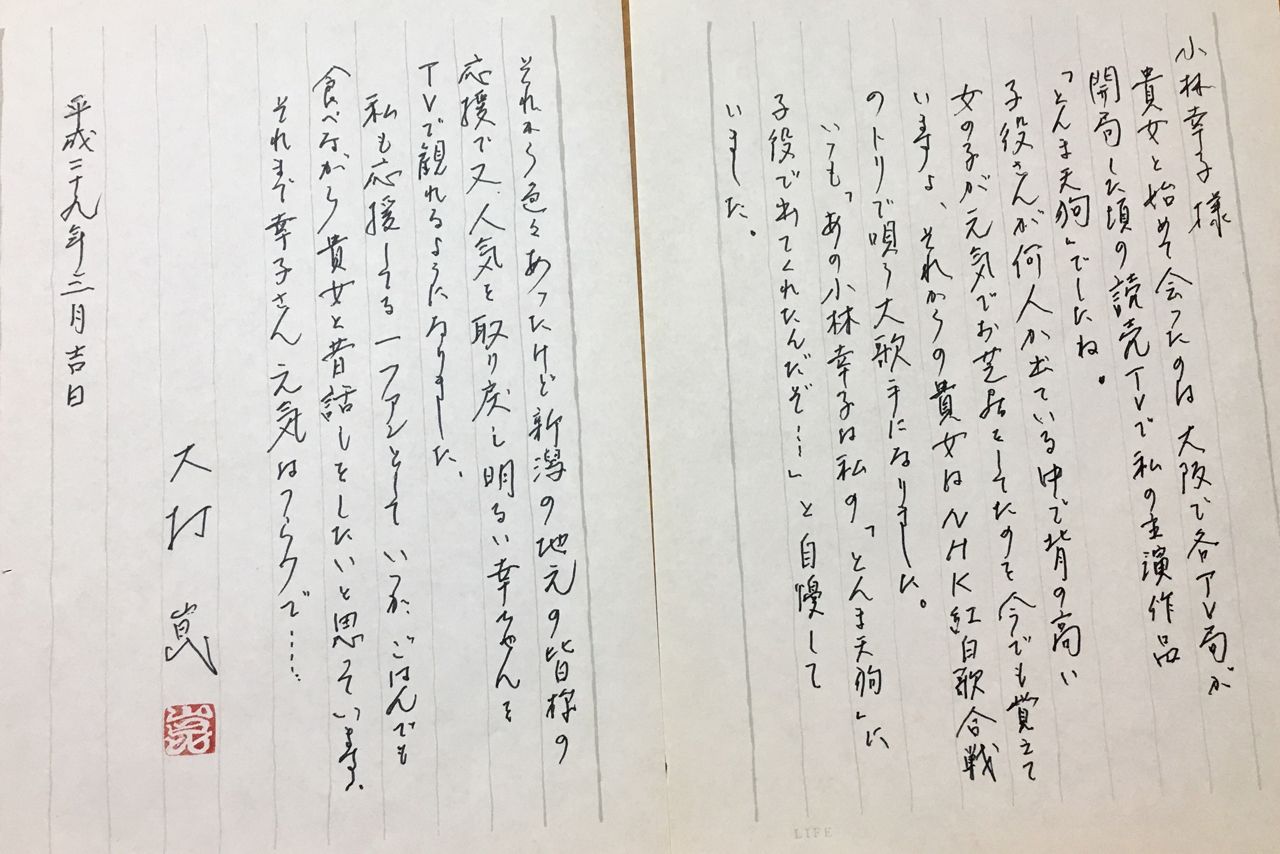 小林幸子様
貴女と始めて会ったのは大阪で各TV局が
開局した頃の読売TVで私の主演作品
「とんま天狗」でしたね。
子役さんが何人か出ている中で背の高い
女の子が元気でお芝居をしてたのを今でも覚えて
います。それからの貴女はNHK紅白歌合戦
のトリで唄う大歌手になりました。
いつも「あの小林幸子は私の「とんま天狗」に
子役で出てくれたんだぞ…」と自慢して
いました。
それから色々あったけど新潟の地元の皆様の
応援で又、人気を取り戻し明るい幸ちゃんを
TVで観れるようになりました。
私も応援してる一ファンとしていつか、ごはんでも
食べながら貴女と昔話しをしたいと思っています。
それまで幸子さん元気はつらつで……
大村崑
崑
平成二十九年二月吉日
LIFE